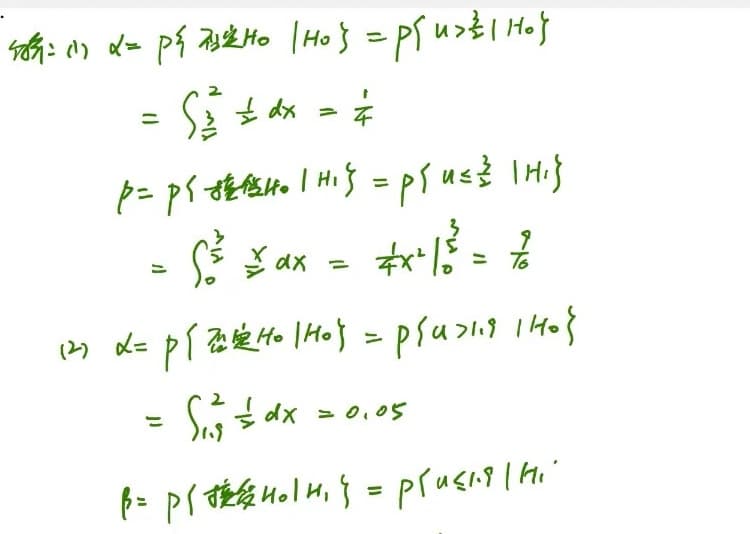 解: (1) α = P{ 否定H₀ | H₀ } = P{ u > 3/2 | H₀ }
= ∫_{3/2}^{2} 1/2 dx = 1/4
β = P{ 接受H₀ | H₁ } = P{ u ≤ 3/2 | H₁ }
= ∫_{0}^{3/2} x/2 dx = 1/4 x² |_{0}^{3/2} = 9/16
(2) α = P{ 否定H₀ | H₀ } = P{ u > 1.9 | H₀ }
= ∫_{1.9}^{2} 1/2 dx = 0.05
β = P{ 接受H₀ | H₁ } = P{ u ≤ 1.9 | H₁